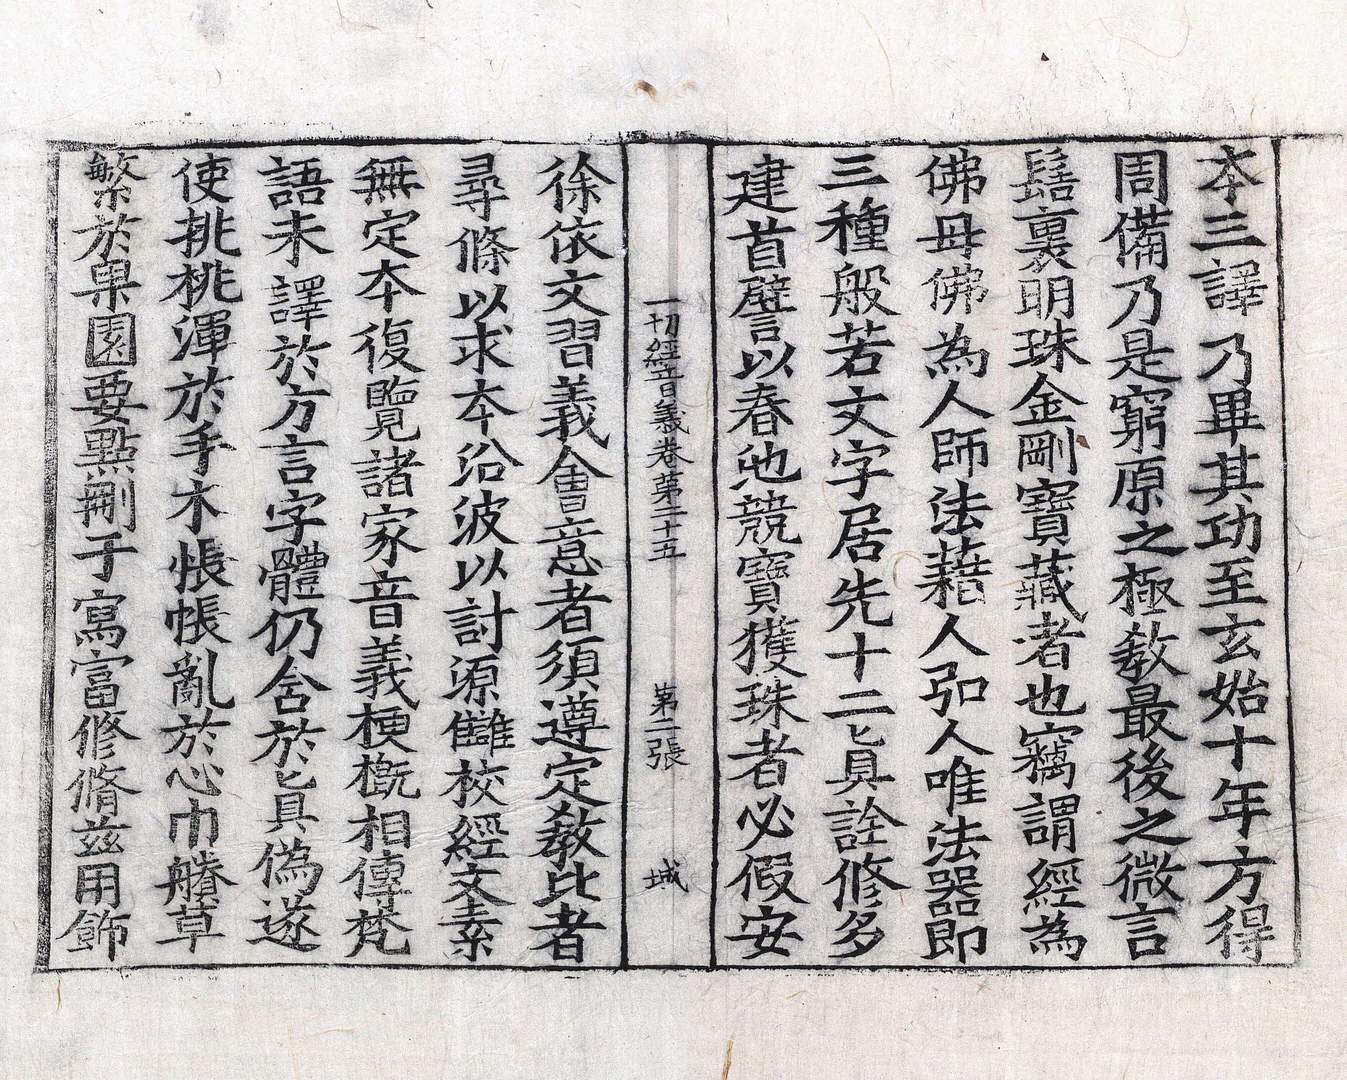 本三譯乃畢其功至玄始十年方得
周備乃是窮原之極教最後之微言
髻裏明珠金剛寶藏者也竊謂經為
佛母佛為人師法藉人弘人唯法器即
三種般若文字居先十二匕具詮修多
建首譬以春池競寶獲珠者必假安
一切經音義卷第二十五 第二張 城
徐依文習義會意者須遵定教比者
尋條以求本沿波以討源讎校經文素
無定本復覽諸家音義梗概相傳梵
語未譯於方言字體仍含於匕具偽遂
使挑桃渾於手木帳悵亂於心巾䒳草
繁於果園要點刪于寫富修脩兹用飾